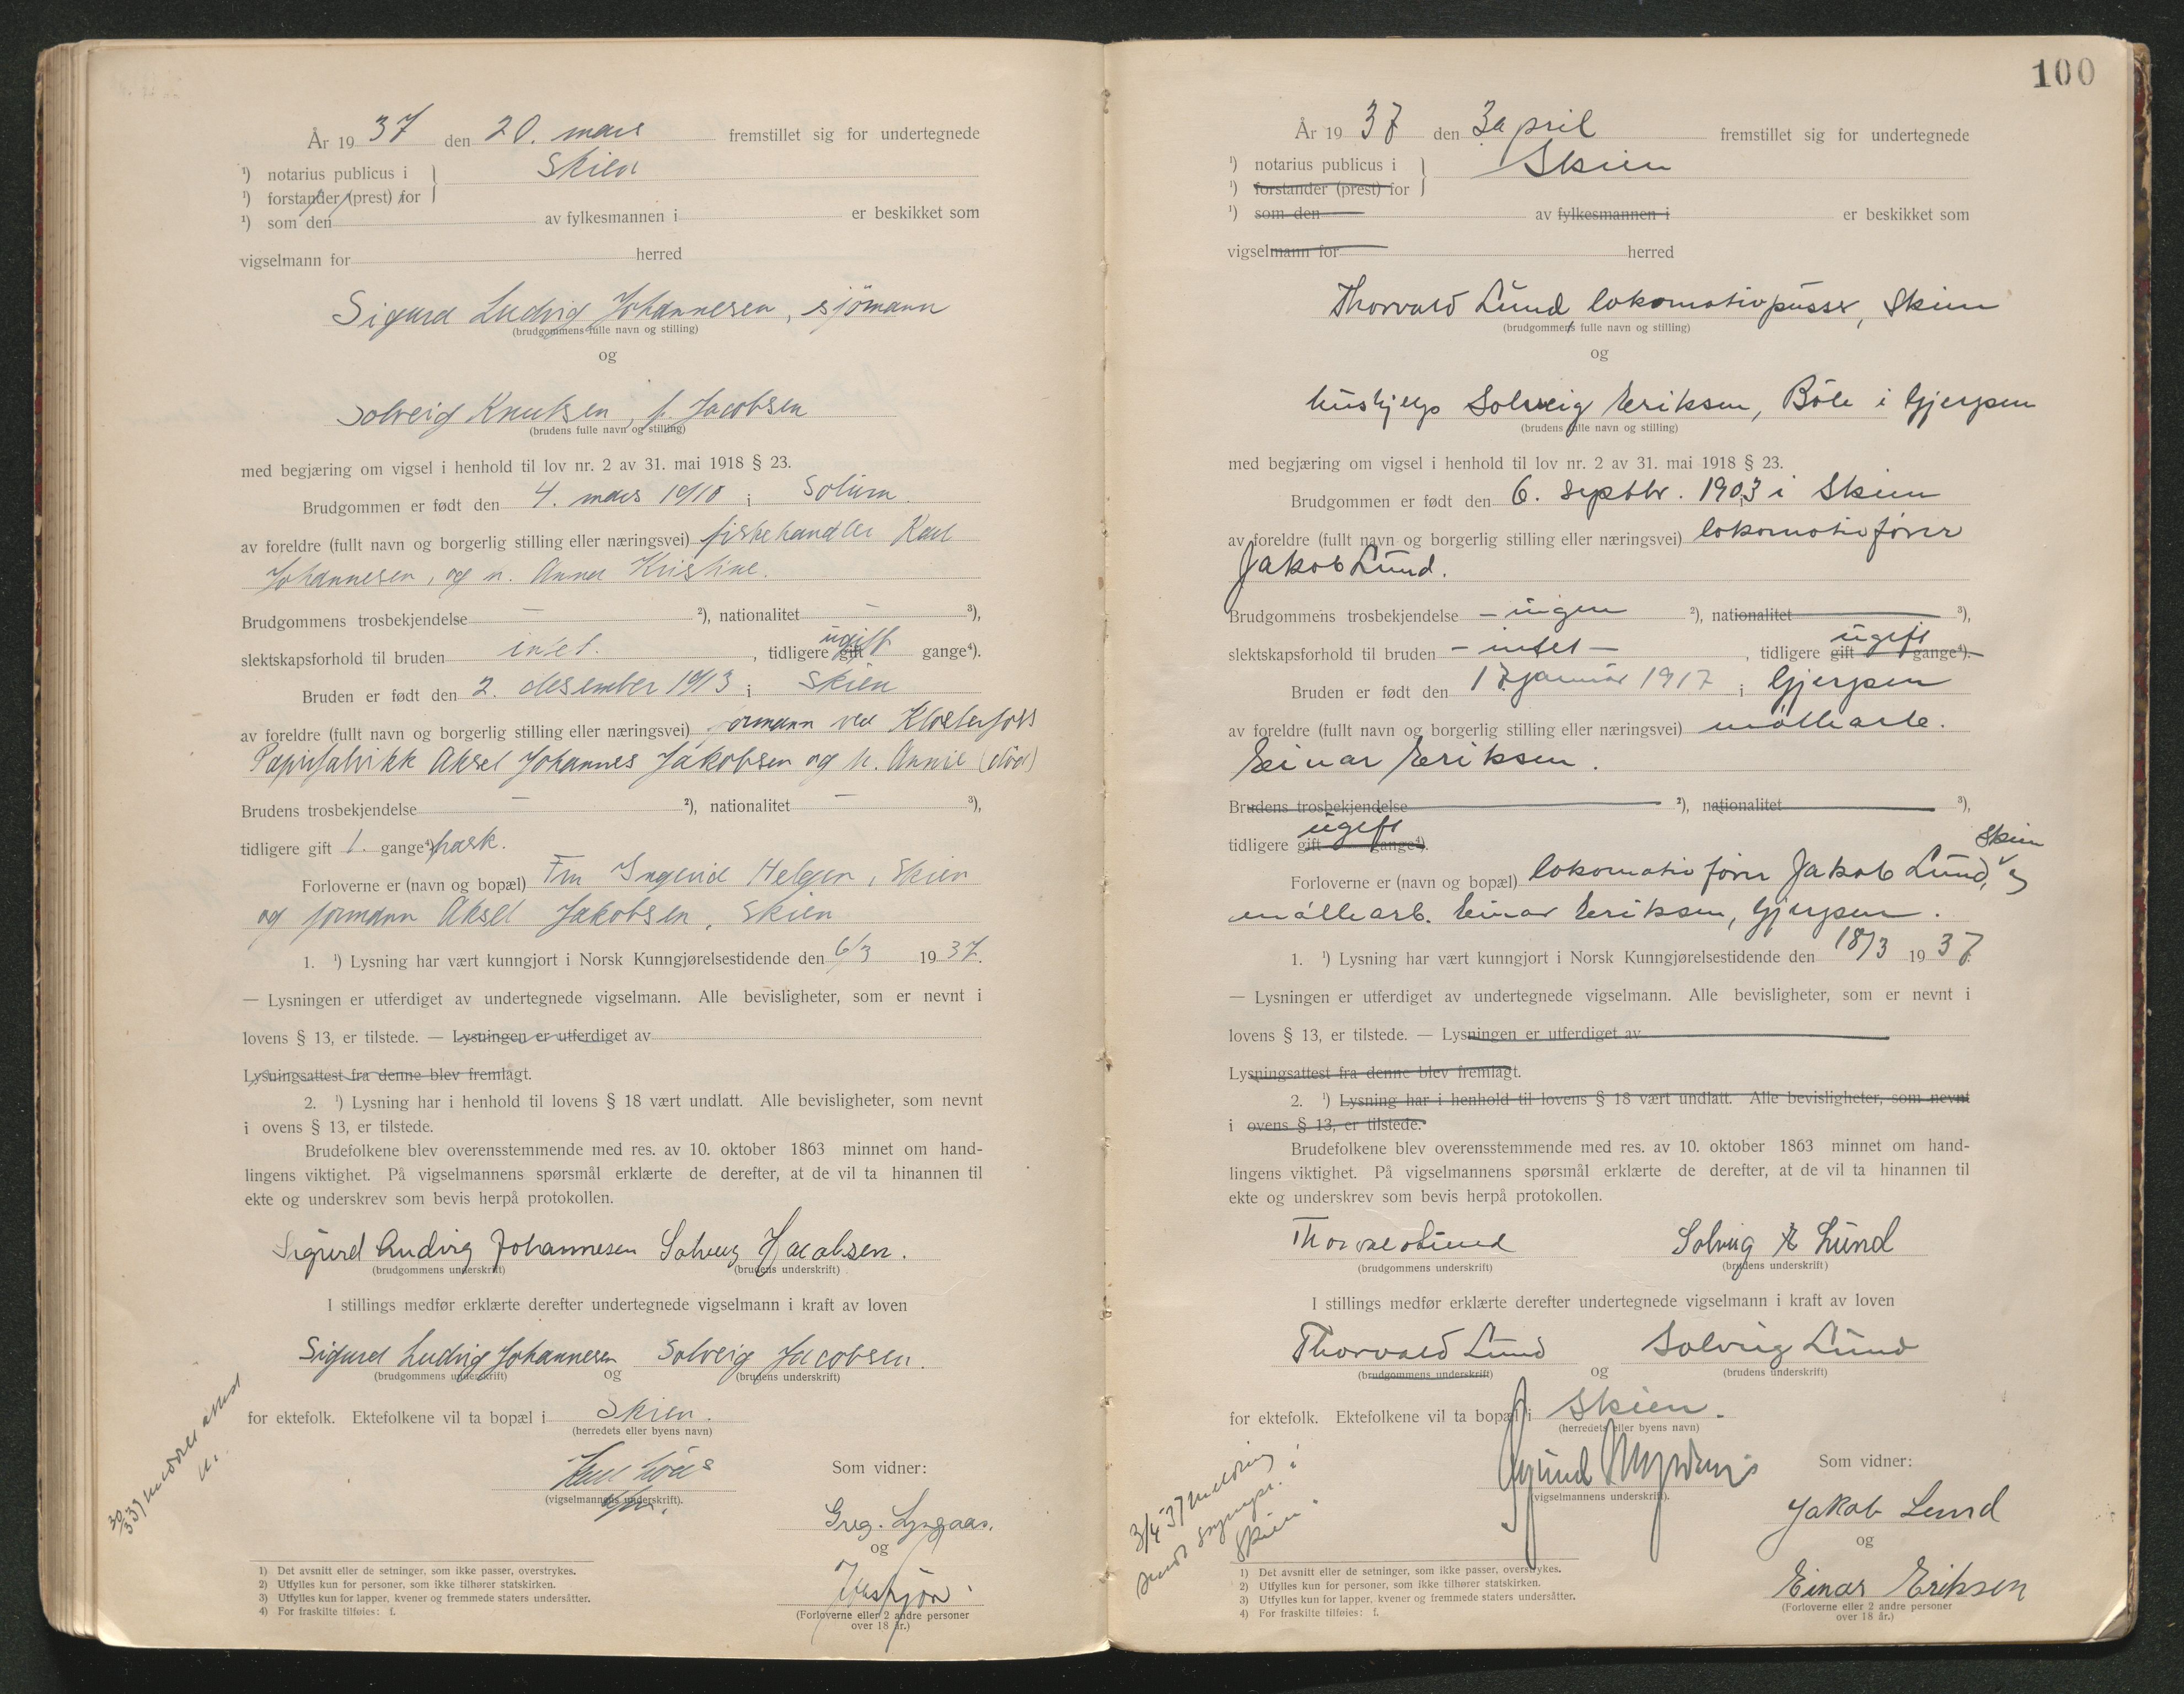 År 19 37 den 20. mars fremstillet sig for undertegnede
¹) notarius publicus i } Skien
¹) forstander (prest) for
¹) som den av fylkesmannen i er beskikket som
vigselmann for herred
Sigurd Ludvig Johannesen, sjömann
(brudgommens fulle navn og stilling)
og
Solveig Knutsen, f. Jacobsen
(brudens fulle navn og stilling)
med begjæring om vigsel i henhold til lov nr. 2 av 31. mai 1918 § 23.
Brudgommen er født den 4. mars 1910 i Solum.
av foreldre (fullt navn og borgerlig stilling eller næringsvei) fiskehandler Karl
Johannesen, og h. Anna Kristine.
Brudgommens trosbekjendelse — ²), nationalitet — ³),
slektskapsforhold til bruden intet. , tidligere gift ugift gange⁴).
Bruden er født den 2. desember 1913 i Skien
av foreldre (fullt navn og borgerlig stilling eller næringsvei) formann ved Klosterfoss
Papirfabrikk Aksel Johannes Jakobsen og h. Annie (död)
Brudens trosbekjendelse — ²), nationalitet — ³),
tidligere gift 1. gange⁴) frask.
Forloverne er (navn og bopæl) Fru Ingerid Helgen, Skien
og formann Aksel Jakobsen, Skien
1. ¹) Lysning har vært kunngjort i Norsk Kunngjørelsestidende den 6/3 19 37.
— Lysningen er utferdiget av undertegnede vigselmann. Alle bevisligheter, som er nevnt i
lovens § 13, er tilstede. — Lysningen er utferdiget av
Lysningsattest fra denne blev fremlagt.
2. ¹) Lysning har i henhold til lovens § 18 vært undlatt. Alle bevisligheter, som nevnt
i ovens § 13, er tilstede.
Brudefolkene blev overensstemmende med res. av 10. oktober 1863 minnet om hand-
lingens viktighet. På vigselmannens spørsmål erklærte de derefter, at de vil ta hinannen til
ekte og underskrev som bevis herpå protokollen.
Sigurd Ludvig Johannesen Solveig Jacobsen.
(brudgommens underskrift) (brudens underskrift)
I stillings medfør erklærte derefter undertegnede vigselmann i kraft av loven
Sigurd Ludvig Johannesen Solveig Jacobsen.
(brudgommens underskrift) og (brudens underskrift)
for ektefolk. Ektefolkene vil ta bopæl i Skien.
(herredets eller byens navn)
Som vidner:
(vigselmannens underskrift).
Greg. Lyngaas.
og
(Forloverne eller 2 andre personer
over 18 år.)
1) Det avsnitt eller de setninger, som ikke passer, overstrykes.
2) Utfylles kun for personer, som ikke tilhører statskirken.
3) Utfylles kun for lapper, kvener og fremmede staters undersåtter.
4) For fraskilte tilføies: f.
100
År 19 37 den 3 april fremstillet sig for undertegnede
¹) notarius publicus i } Skien
¹) forstander (prest) for
¹) som den av fylkesmannen i er beskikket som
vigselmann for herred
Thorvald Lund, lokomotivpusser, Skien
(brudgommens fulle navn og stilling)
og
hushjelp Solveig Eriksen, Böle i Gjerpen
(brudens fulle navn og stilling)
med begjæring om vigsel i henhold til lov nr. 2 av 31. mai 1918 § 23.
Brudgommen er født den 6. septbr. 1903 i Skien
av foreldre (fullt navn og borgerlig stilling eller næringsvei) lokomotivfører
Jakob Lund.
Brudgommens trosbekjendelse — ingen ²), nationalitet ³),
slektskapsforhold til bruden — intet — , tidligere gift ugift gange⁴).
Bruden er født den 17. januar 1917 i Gjerpen
av foreldre (fullt navn og borgerlig stilling eller næringsvei) møllearb.
Einar Eriksen.
Brudens trosbekjendelse ²), nationalitet ³),
tidligere gift ugift gange⁴).
Forloverne er (navn og bopæl) lokomotivfører Jakob Lund, Skien og
møllearb. Einar Eriksen, Gjerpen.
1. ¹) Lysning har vært kunngjort i Norsk Kunngjørelsestidende den 18/3 19 37.
— Lysningen er utferdiget av undertegnede vigselmann. Alle bevisligheter, som er nevnt i
lovens § 13, er tilstede. — Lysningen er utferdiget av
Lysningsattest fra denne blev fremlagt.
2. ¹) Lysning har i henhold til lovens § 18 vært undlatt. Alle bevisligheter, som nevnt
i ovens § 13, er tilstede.
Brudefolkene blev overensstemmende med res. av 10. oktober 1863 minnet om hand-
lingens viktighet. På vigselmannens spørsmål erklærte de derefter, at de vil ta hinannen til
ekte og underskrev som bevis herpå protokollen.
Thorvald Lund Solveig E Lund
(brudgommens underskrift) (brudens underskrift)
I stillings medfør erklærte derefter undertegnede vigselmann i kraft av loven
Thorvald Lund Solveig Lund
(brudgommens underskrift) og (brudens underskrift)
for ektefolk. Ektefolkene vil ta bopæl i Skien.
(herredets eller byens navn)
Som vidner:
(vigselmannens underskrift).
Jakob Lund
og
Einar Eriksen
(Forloverne eller 2 andre personer
over 18 år.)
3/4 37 melding
sendt
Skien
1) Det avsnitt eller de setninger, som ikke passer, overstrykes.
2) Utfylles kun for personer, som ikke tilhører statskirken.
3) Utfylles kun for lapper, kvener og fremmede staters undersåtter.
4) For fraskilte tilføies: f.